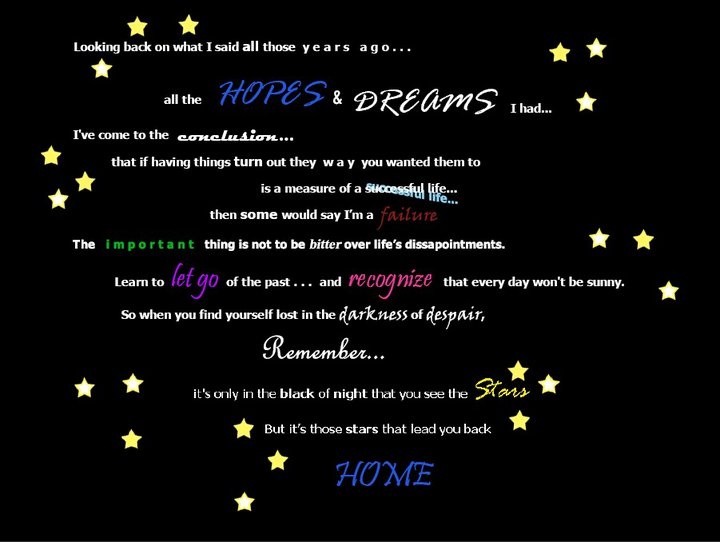 Looking back on what I said all those y e a r s a g o . . .
all the HOPES & DREAMS I had...
I've come to the conclusion...
that if having things turn out they w a y you wanted them to
is a measure of a successful life...
successful life...
then some would say I'm a failure
The i m p o r t a n t thing is not to be bitter over life's dissapointments.
Learn to let go of the past . . . and recognize that every day won't be sunny.
So when you find yourself lost in the darkness of despair,
Remember...
it's only in the black of night that you see the Stars
But it's those stars that lead you back
HOME